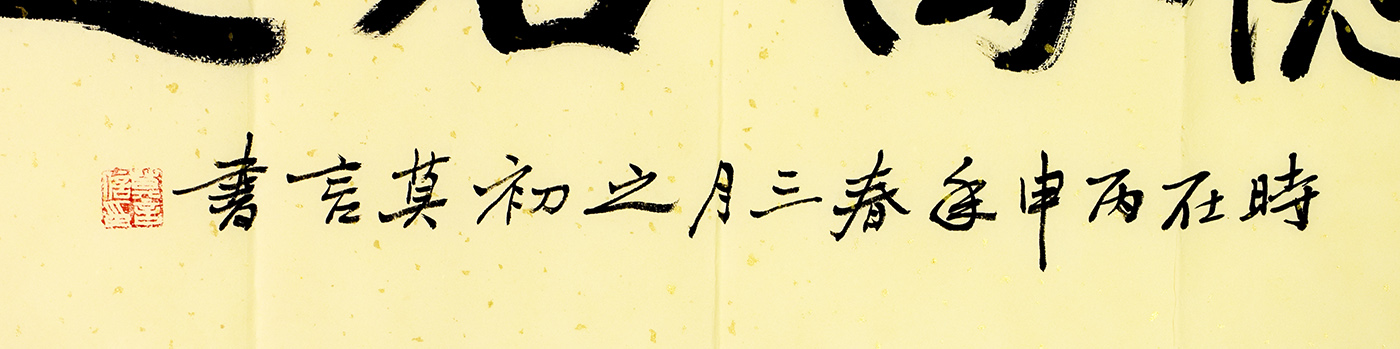 時在丙申年春三月之初莫言書